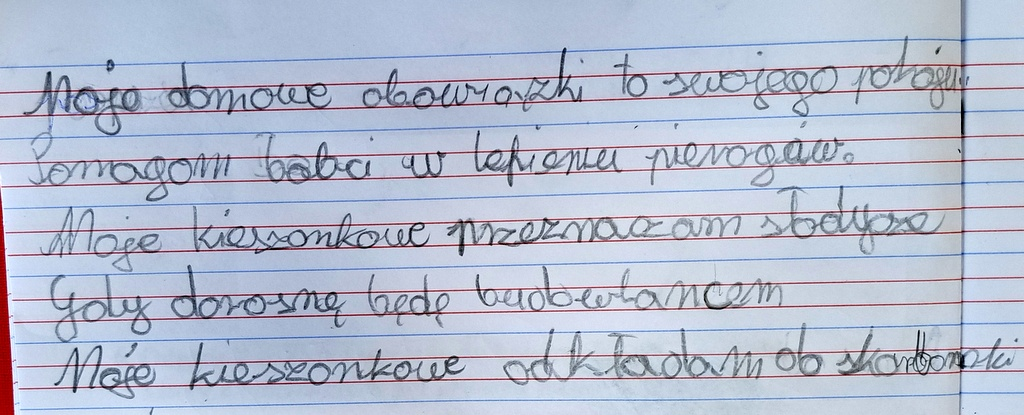 Moje domowe obowiązki to swojego pokoju.
Pomagam babci w lepieniu pierogów.
Moje kieszonkowe przeznaczam słodycze
Gdy dorosnę będę budowlancem
Moje kieszonkowe odkładam do skarbonki